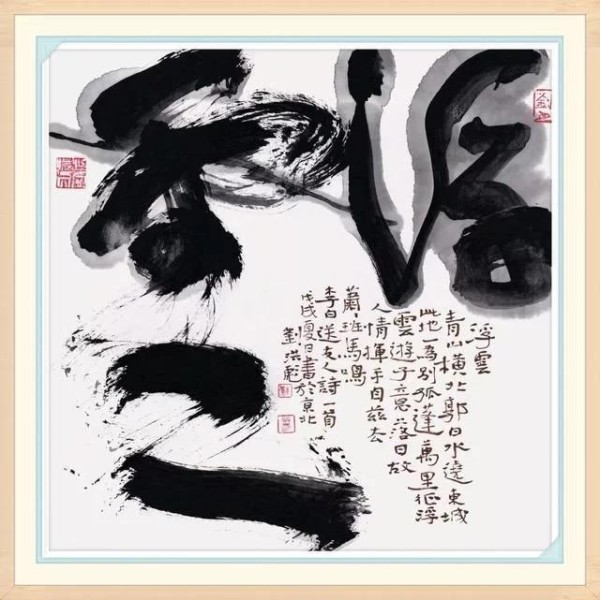 浮雲
浮雲
青山橫北郭白水遶東城
此地一為別孤蓬萬里征浮
雲遊子意落日故
人情揮手自茲去
蕭〻班馬鳴
李白送友人詩一首
戊戌夏日書於京北
劉洪彪